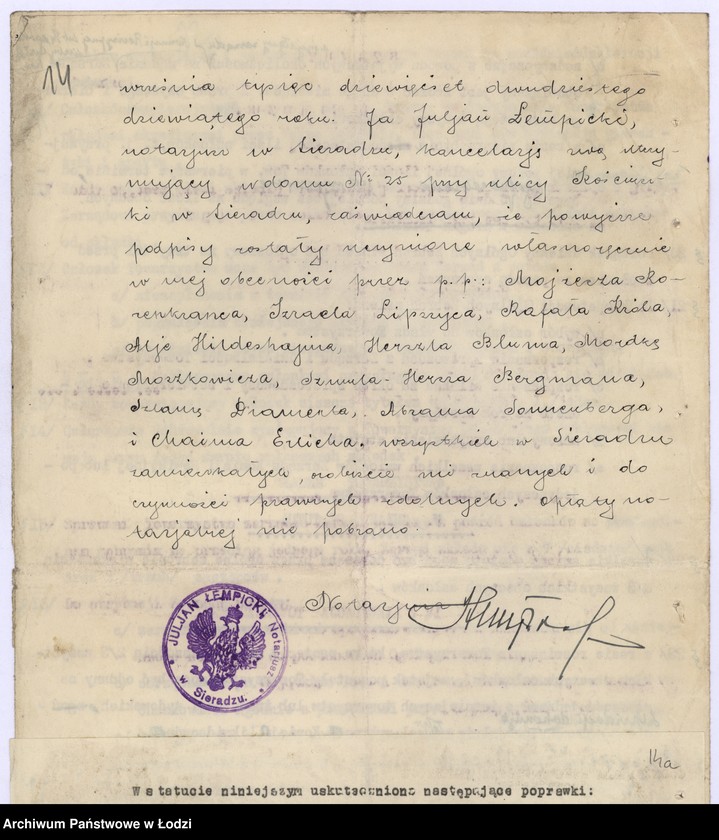 14
września tysiąc dziewięćset dwudziestego
dziewiątego roku. Ja Juljan Łempicki,
notarjusz w Sieradzu, kancelarję swą utrzy-
mujący w domu № 25 przy ulicy Kościusz-
ki w Sieradzu, zaświadczam, że powyższe
podpisy zostały uczynione własnoręcznie
w mej obecności przez p.p: Mojżesza Ro-
zenkranca, Izraela Lipszyca, Rafała Króla,
Alje Hildeshajma, Herszla Bluma, Mordkę
Moszkowicza, Szmula-Hersza Bergmana,
Szlamę Diamenta, Abrama Sonnenberga,
i Chaima Erlicha. wszystkich w Sieradzu
zamieszkałych, osobiście mi znanych i do
czynności prawnych zdolnych. Opłaty no-
tarjalnej nie pobrano.
Notarjusz
JULJAN ŁEMPICKI, Notarjusz
w Sieradzu.
14a
W statucie niniejszym uskuteczniono następujące poprawki:
Archiwum Państwowe w Łodzi